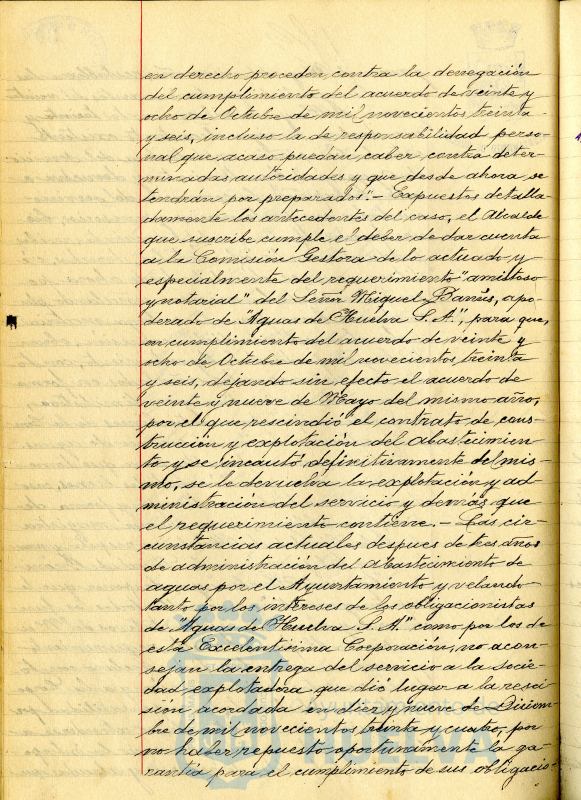 en derecho proceden contra la denegación
del cumplimiento del acuerdo de veinte y
ocho de Octubre de mil novecientos treinta
y seis, incluso la de responsabilidad perso-
nal que acaso puedan caber contra deter-
minadas autoridades y que desde ahora se
tendrán por preparados".- Expuestos detalla-
damente los antecedentes del caso, el Alcalde
que suscribe cumple el deber de dar cuenta
a la Comisión Gestora de lo actuado y
especialmente del requerimiento "amistoso
y notarial" del Señor Miguel y Danús, apo-
derado de "Aguas de Huelva S.A.", para que,
en cumplimiento del acuerdo de veinte y
ocho de Octubre de mil novecientos treinta
y seis, dejando sin efecto el acuerdo de
veinte y nueve de Mayo del mismo año,
por el que rescindió el contrato de cons-
trucción y explotación del Abastecimien-
to y se incautó definitivamente del mis-
mo, se le devuelva la explotación y ad-
ministración del servicio y demás que
el requerimiento contiene.- Las cir-
cunstancias actuales despues de tres años
de administración del Abastecimiento de
aguas por el Ayuntamiento y velando
tanto por los intereses de los obligacionistas
de "Aguas de Huelva S.A." como por los de
esta Excelentisima Corporación, no acon-
sejan la entrega del servicio a la socie-
dad explotadora que dió lugar a la resci-
sión acordada en diez y nueve de Diciem-
bre de mil novecientos treinta y cuatro, por
no haber repuesto oportunamente la ga-
rantía para el cumplimiento de sus obligacio-
HUELVA